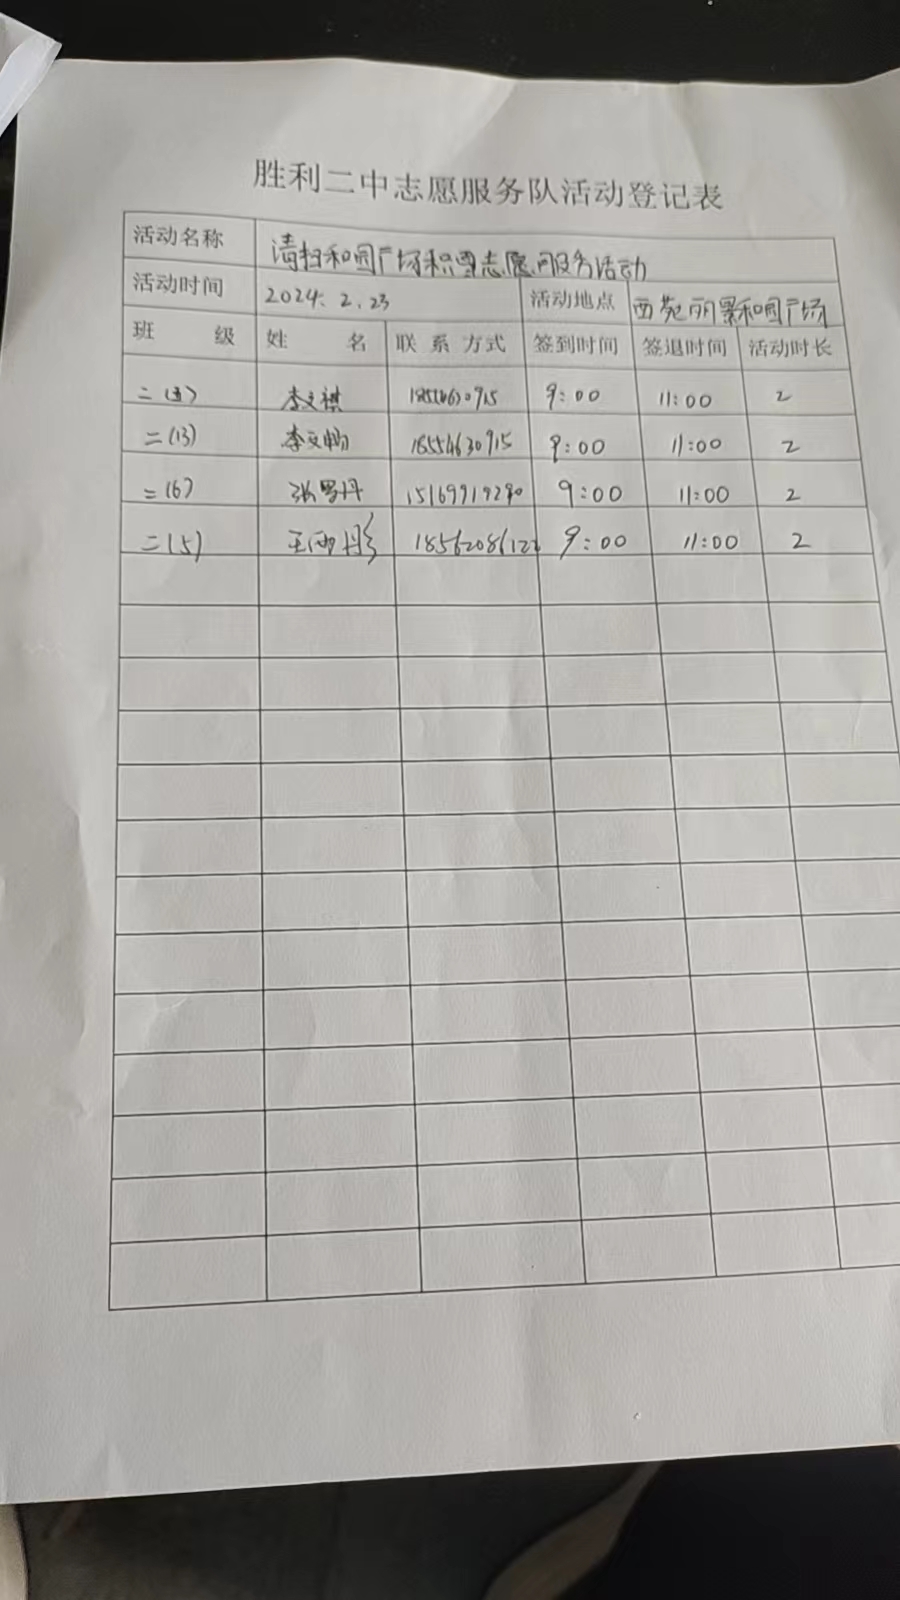 胜利二中志愿服务队活动登记表
活动名称 清扫和园广场积雪志愿服务活动
活动时间 2024.2.23 活动地点 西苑丽景和园广场
班 级 姓 名 联系方式 签到时间 签退时间 活动时长
二(5) 李文祺 9:00 11:00 2
二(13) 李文畅 18554630915 9:00 11:00 2
二(6) 张 丹 15169919290 9:00 11:00 2
二(5) 王雨彤 9:00 11:00 2